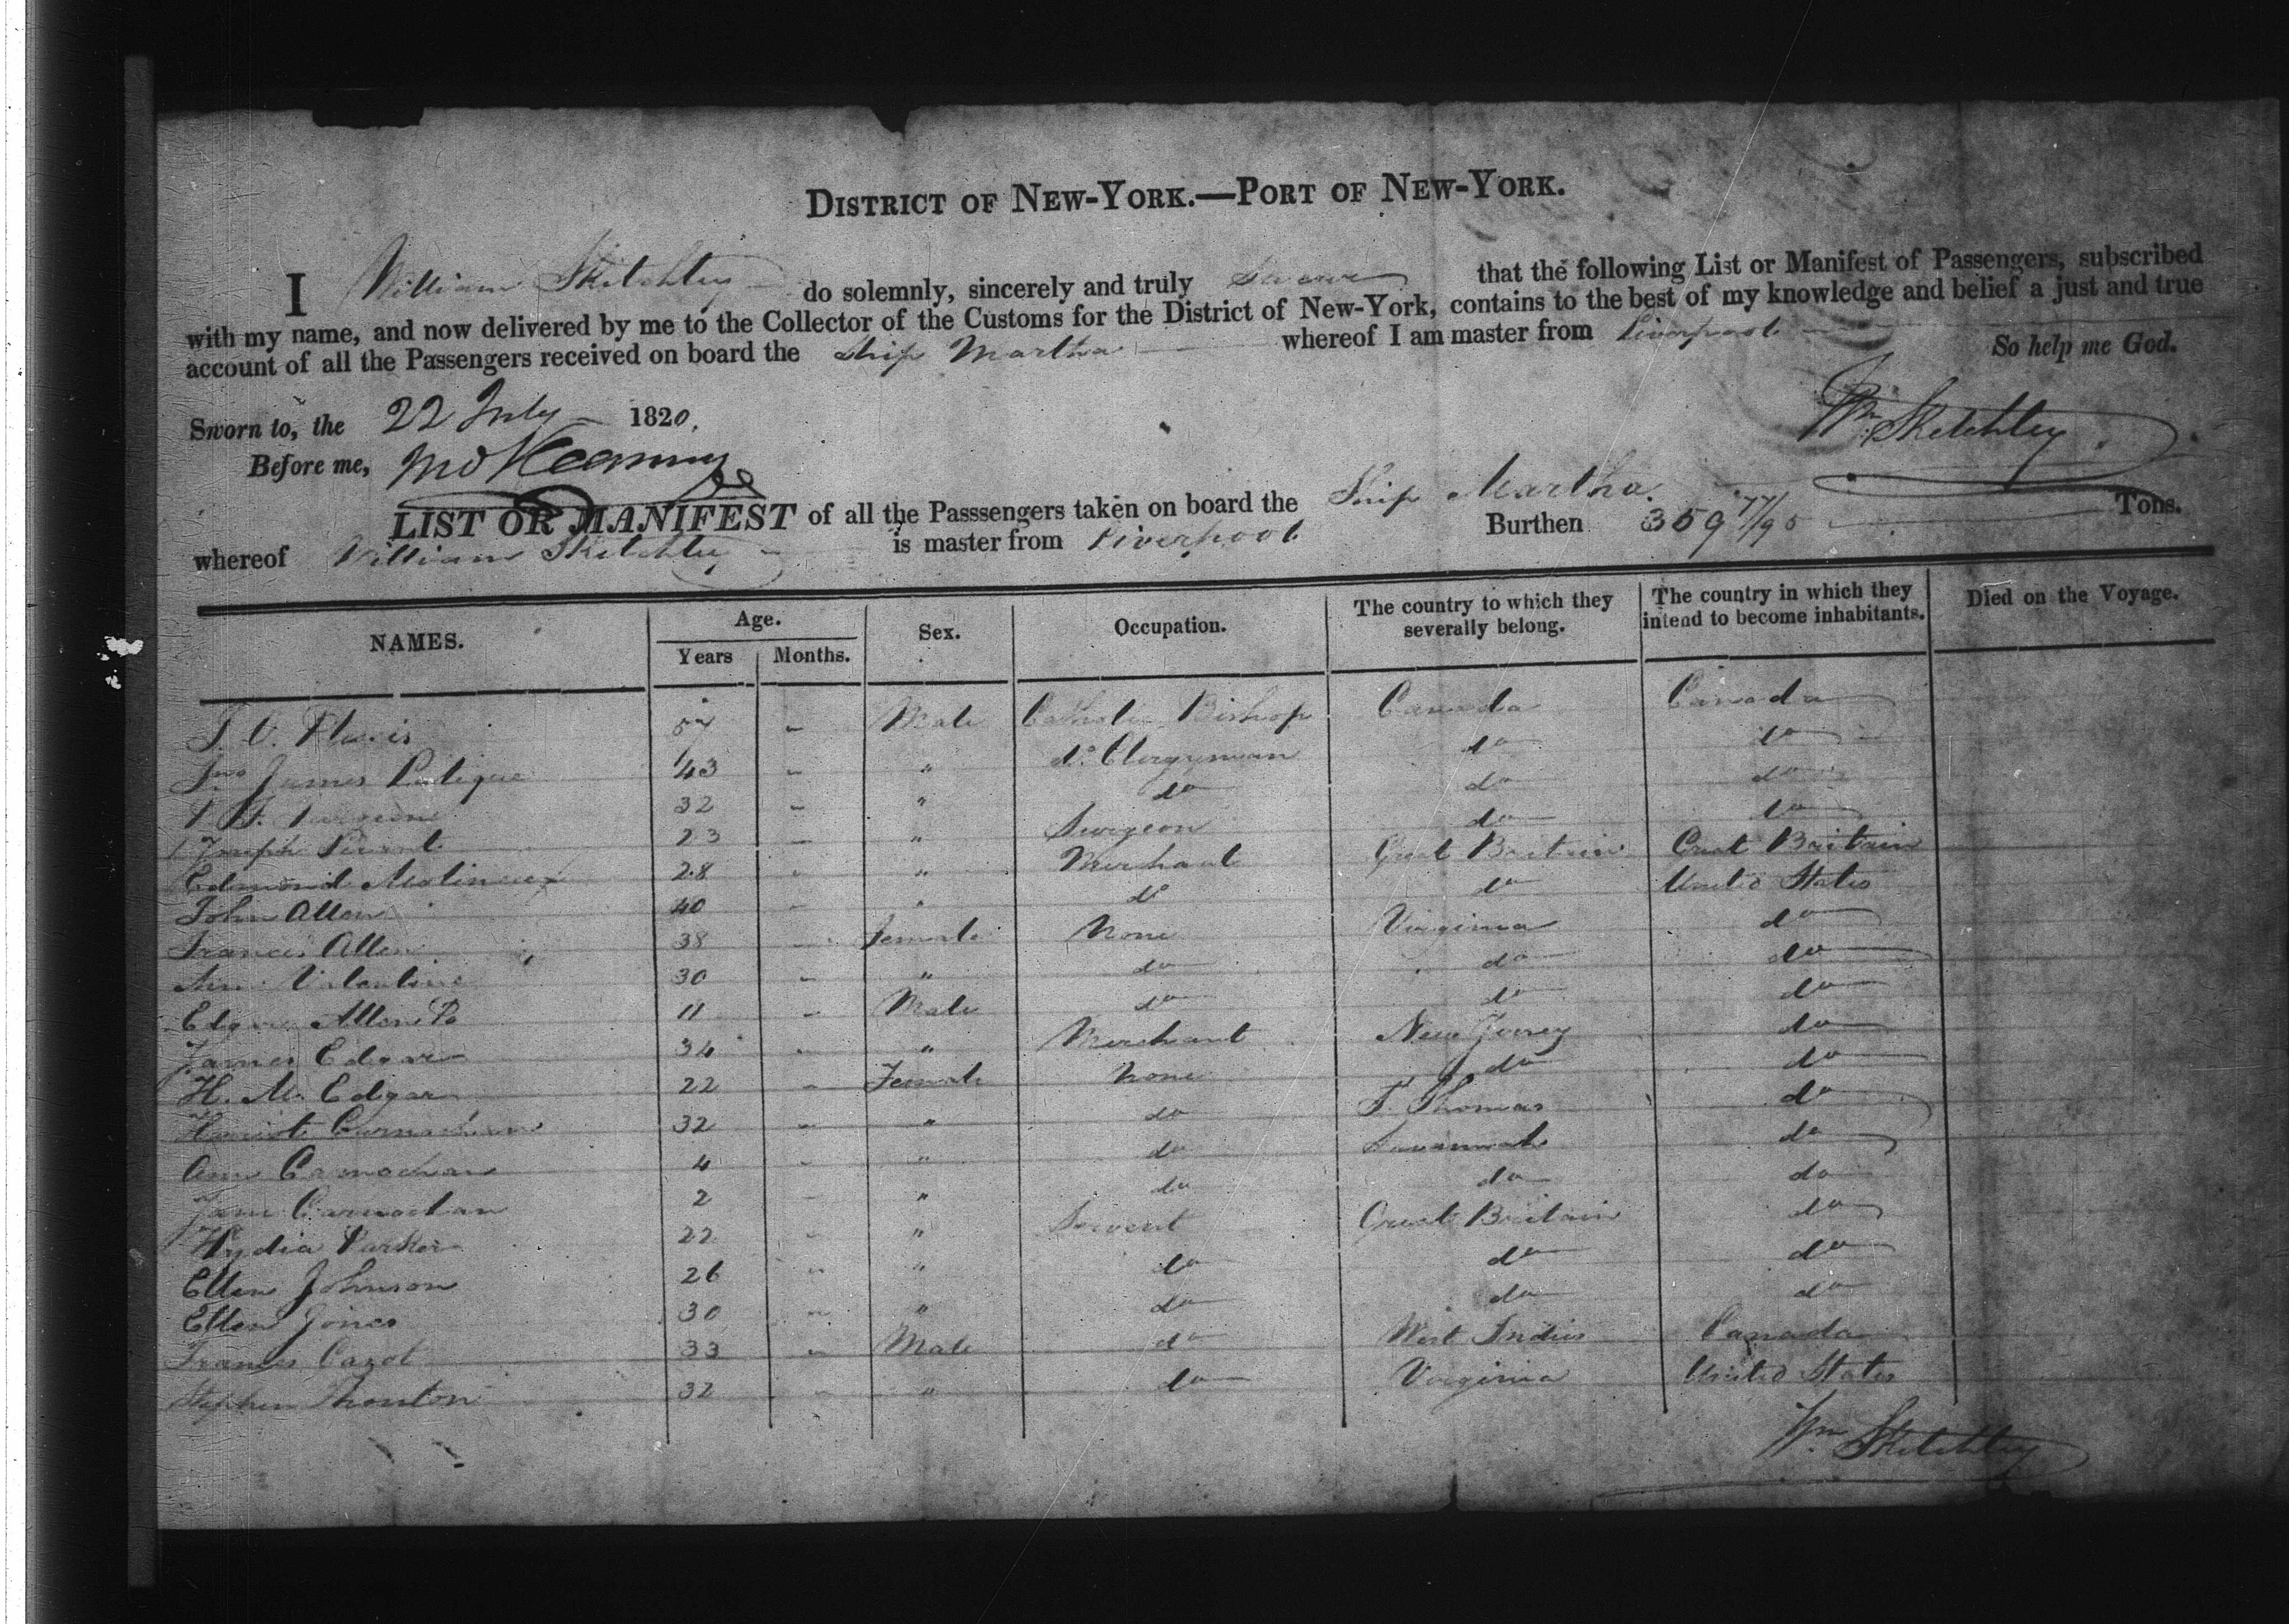 DISTRICT OF NEW-YORK.—PORT OF NEW-YORK.
I William Sketchley do solemnly, sincerely and truly Swear that the following List or Manifest of Passengers, subscribed
with my name, and now delivered by me to the Collector of the Customs for the District of New-York, contains to the best of my knowledge and belief a just and true
account of all the Passengers received on board the Ship Martha whereof I am master from Liverpool So help me God.
Wm Sketchley
Sworn to, the 22 July 1820.
Before me,
LIST OR MANIFEST of all the Passsengers taken on board the Ship Martha
whereof William Sketchley is master from Liverpool Burthen 359 77/95 Tons.
NAMES. Age. Years Months. Sex. Occupation. The country to which they severally belong. The country in which they intend to become inhabitants. Died on the Voyage.
J. O. Plessis 57 - Male Catholic Bishop Canada Canada
Jno James 43 - " do Clergyman do do
Turgeon 32 - " do do do
Joseph 23 - " Surgeon do do
Edmond Molineux 28 - " Merchant Great Britain Great Britain
John Allen 40 - " do do United States
Francis Allen 38 - Female None Virginia do
Ann Valentine 30 - " do do do
Edgar Allen Po 11 - Male do do do
James Edgar 34 - " Merchant New Jersey do
H. M. Edgar 22 - Female None do do
Harriot Carnochan 32 - " do St Thomas do
Ann Carnochan 4 - " do Savannah do
Jane Carnochan 2 - " do do do
Lydia Parker 22 - " Servent Great Britain do
Ellen Johnson 26 - " do do do
Ellen Jones 30 - " do do do
Francis Cazot 33 - Male do West Indies Canada
Stephen Thonton 32 - " do Virginia United States
Wm Sketchley